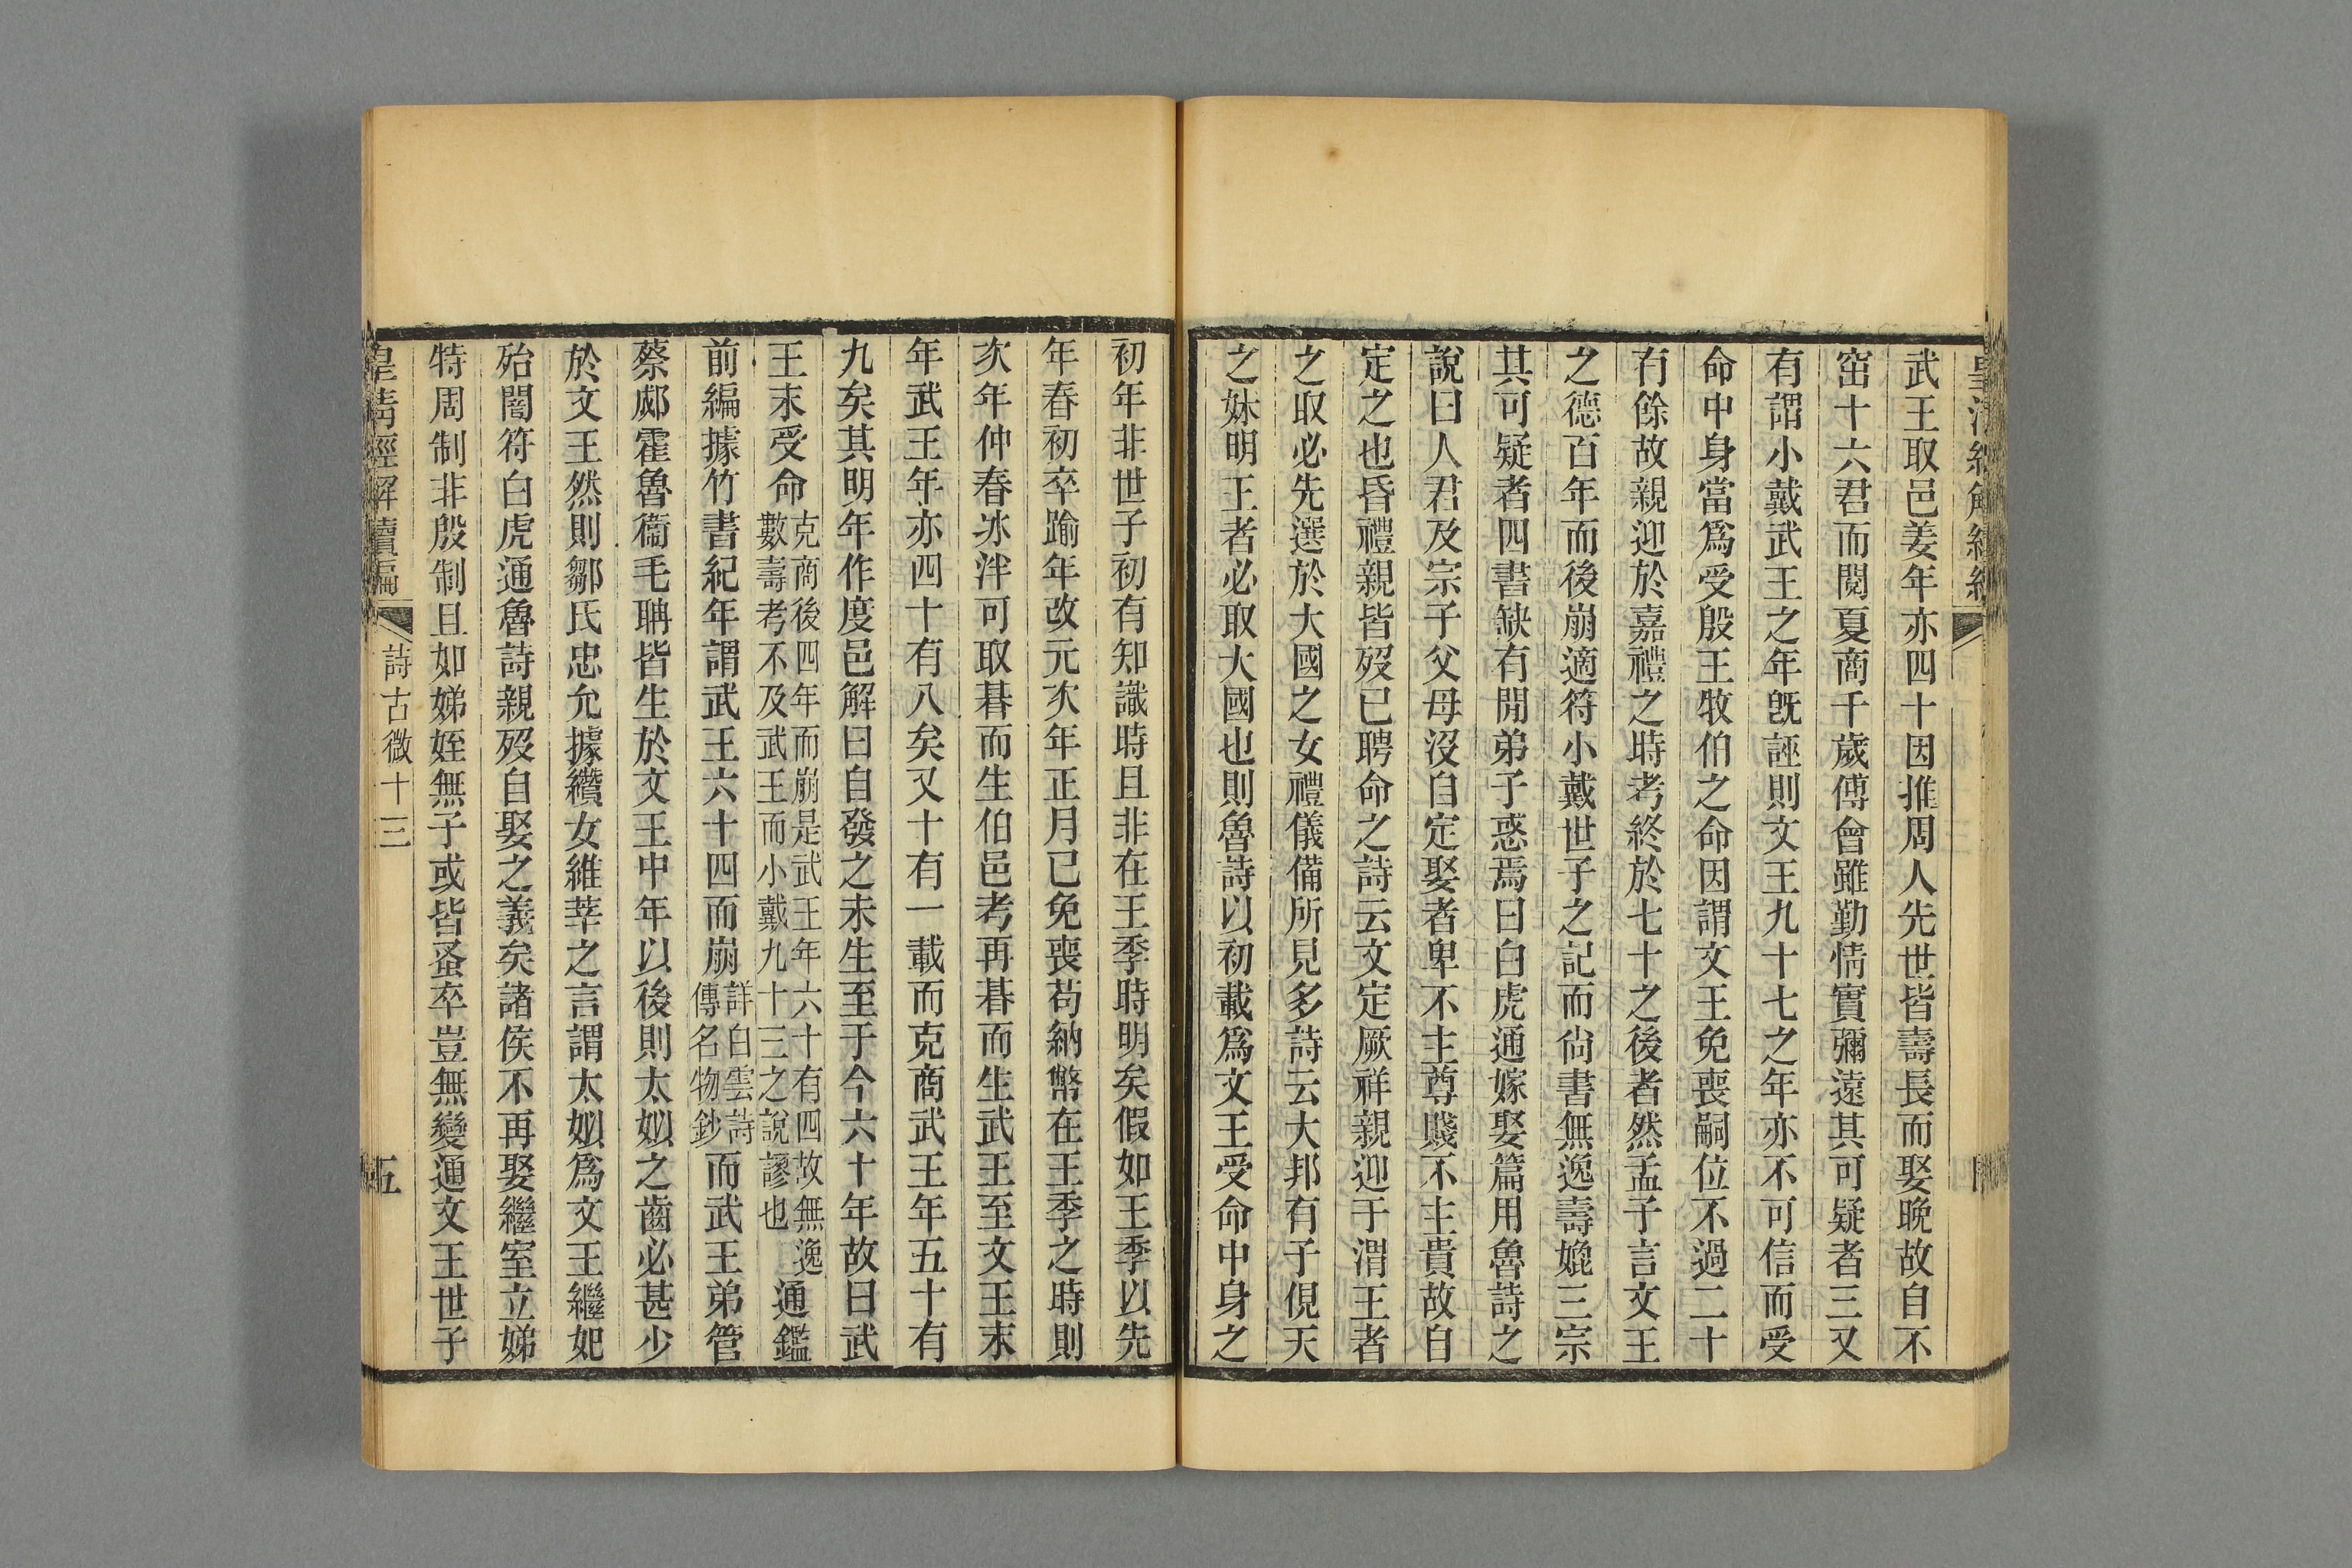 武王取邑姜年亦四十因推周人先世皆壽長而娶晚故自不
窋十六君而閱夏商千歲傅會雖勤情實彌遠其可疑者三又
有謂小戴武王之年旣誣則文王九十七之年亦不可信而受
命中身當爲受殷王牧伯之命因謂文王免喪嗣位不過二十
有餘故親迎於嘉禮之時考終於七十之後者然孟子言文王
之德百年而後崩適符小戴世子之記而尙書無逸壽媲三宗
其可疑者四書缺有閒弟子惑焉曰白虎通嫁娶篇用魯詩之
說曰人君及宗子父母沒自定娶者卑不主尊賤不主貴故自
定之也昏禮親皆歿已聘命之詩云文定厥祥親迎于渭王者
之取必先選於大國之女禮儀備所見多詩云大邦有子俔天
之妹明王者必取大國也則魯詩以初載爲文王受命中身之
初年非世子初有知識時且非在王季時明矣假如王季以先
年春初卒踰年改元次年正月已免喪苟納幣在王季之時則
次年仲春冰泮可取朞而生伯邑考再朞而生武王至文王末
年武王年亦四十有八矣又十有一載而克商武王年五十有
九矣其明年作度邑解曰自發之未生至于今六十年故曰武
王末受命
克商後四年而崩是武王年六十有四故無逸
數壽考不及武王而小戴九十三之說謬也
通鑑
前編據竹書紀年謂武王六十四而崩
詳白雲詩
傳名物鈔
而武王弟管
蔡郕霍魯衞毛聃皆生於文王中年以後則太姒之齒必甚少
於文王然則鄒氏忠允據纘女維莘之言謂太姒爲文王繼妃
殆闇符白虎通魯詩親歿自娶之義矣諸侯不再娶繼室立娣
特周制非殷制且如娣姪無子或皆蚤卒豈無變通文王世子
皇清經解續編
詩古微十三
五